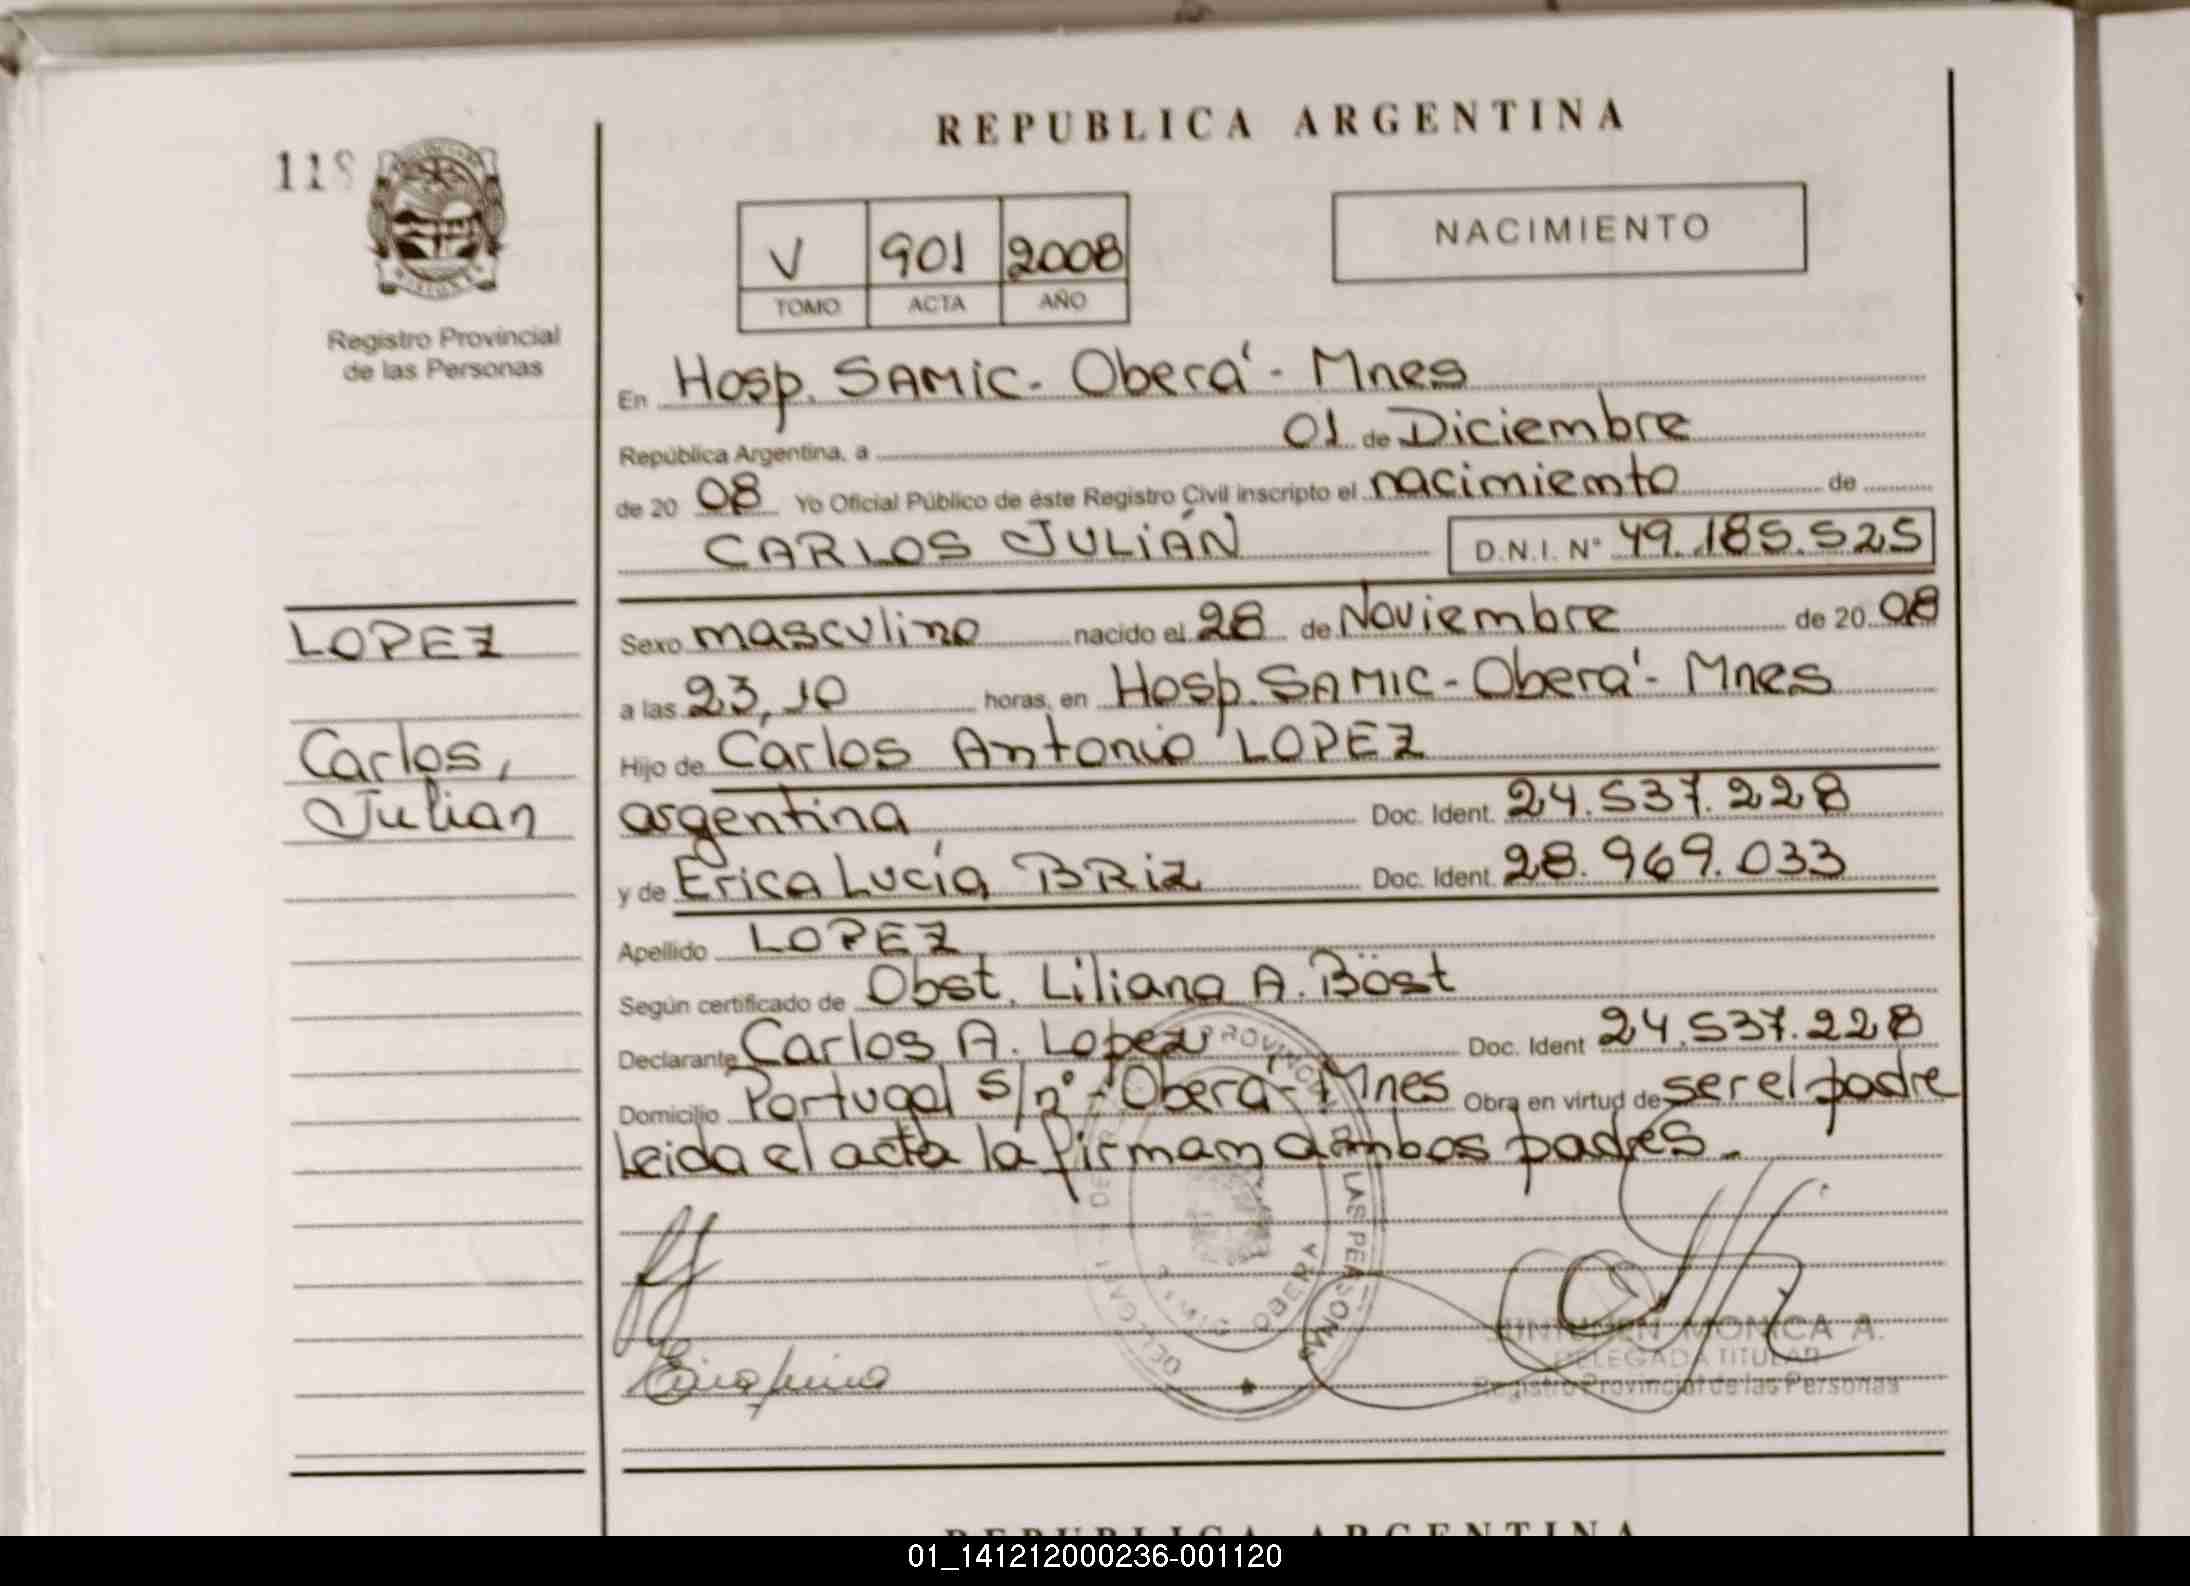 REPUBLICA ARGENTINA
118
V 901 2008
TOMO ACTA AÑO
NACIMIENTO
Registro Provincial
de las Personas
En Hosp. SAMIC - Oberá - Mnes
República Argentina, a 01 de Diciembre
de 20 08 Yo Oficial Público de éste Registro Civil inscripto el nacimiento de
CARLOS JULIÁN D.N.I. N° 49.185.525
LOPEZ
Carlos,
Julián
Sexo masculino nacido el 28 de Noviembre de 20 08
a las 23,10 horas, en Hosp. SAMIC - Oberá - Mnes
Hijo de Carlos Antonio LOPEZ
argentina Doc. Ident. 24.537.228
y de Erica Lucía BRiz Doc. Ident. 28.969.033
Apellido LOPEZ
Según certificado de Obst. Liliana A. Böst
Declarante Carlos A. Lopez Doc. Ident 24.537.228
Domicilio Portugal s/n° - Oberá - Mnes Obra en virtud de ser el padre
leida el acta la firman ambos padres.-
PROVINCIAL DE LAS PERSONAS
OBERA
MONICA A.
DELEGADA TITULAR
Registro Provincial de las Personas
REPUBLICA ARGENTINA
01_141212000236-001120